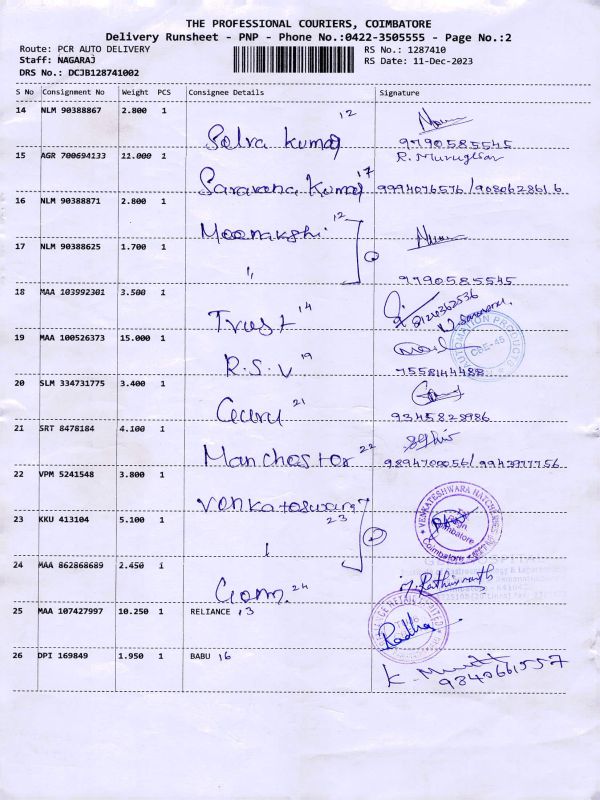 THE PROFESSIONAL COURIERS, COIMBATORE
Delivery Runsheet - PNP - Phone No.:0422-3505555 - Page No.:2
Route: PCR AUTO DELIVERY RS No.: 1287410
Staff: NAGARAJ RS Date: 11-Dec-2023
DRS No.: DCJB128741002
S No Consignment No Weight PCS Consignee Details Signature
14 NLM 90388867 2.800 1 Selva Kumar 12
9790585545
15 AGR 700694133 11.000 1 R. Murugesan
Saravana Kumar 17 9994076576 / 9080628616
16 NLM 90388871 2.800 1 Meenakshi 12
17 NLM 90388625 1.700 1 "
9790585545
18 MAA 103992301 3.500 1 Trust 14
19 MAA 100526373 15.000 1 R.S.V 19
AUTOMATION PRODUCTS
CBE-45
7558144488
20 SLM 334731775 3.400 1 Guru 21
9345828986
21 SRT 8478184 4.100 1 Manchester 22
9894700056/9943977756
22 VPM 5241548 3.800 1 Venkateswara
VENKATESHWARA HATCHERIES
Coimbatore
23 KKU 413104 5.100 1 23
24 MAA 862868689 2.450 1 Gem. 24
25 MAA 107427997 10.250 1 RELIANCE 13
Radha
26 DPI 169849 1.950 1 BABU 16
9340661557